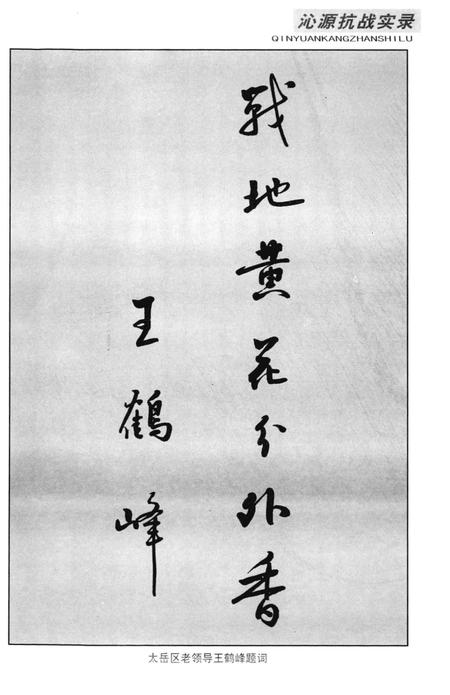 沁源抗战实录
QINYUANKANGZHANSHILU
戰地黄花分外香
王鹤峰
太岳区老领导王鹤峰题词